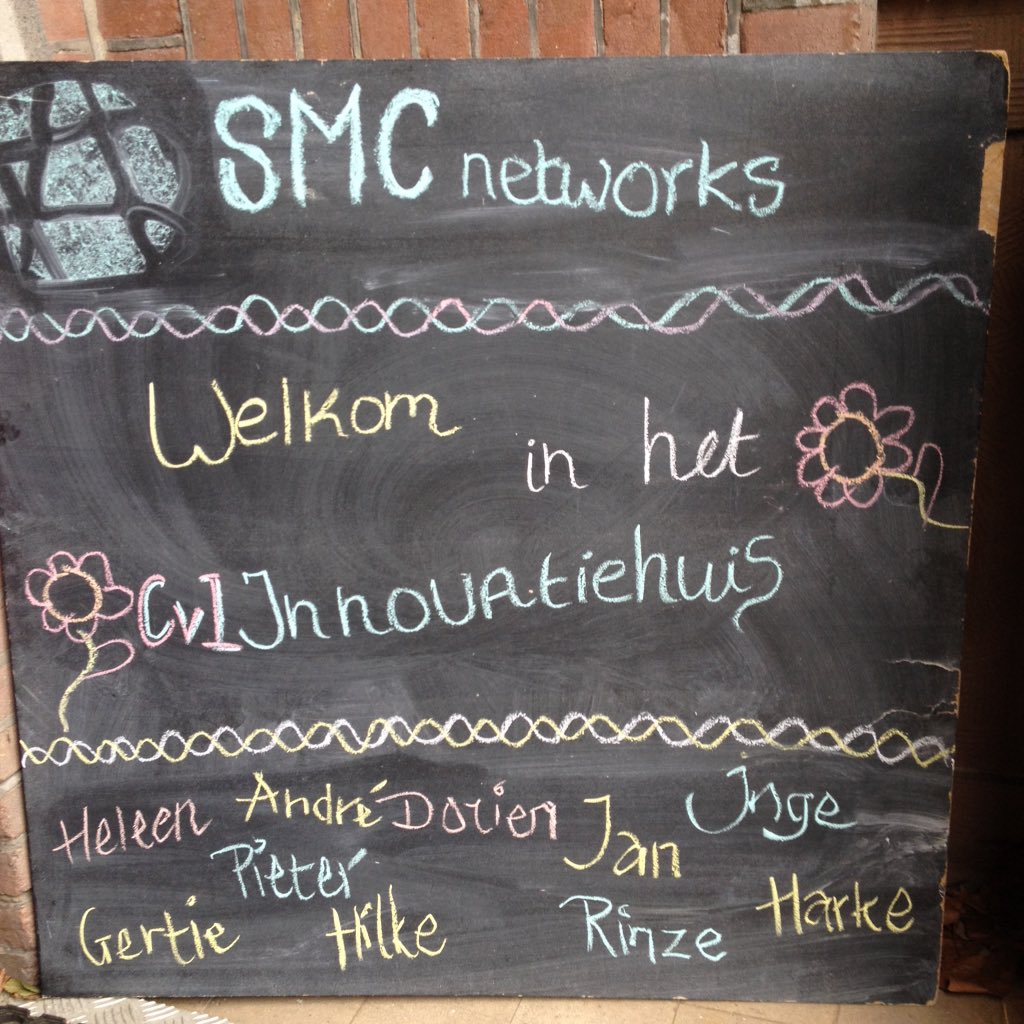 SMC networks
Welkom in het
CvI Innovatiehuis
Heleen André Dorien Jan Inge
Pieter
Gertie Hilke Rinze Harke